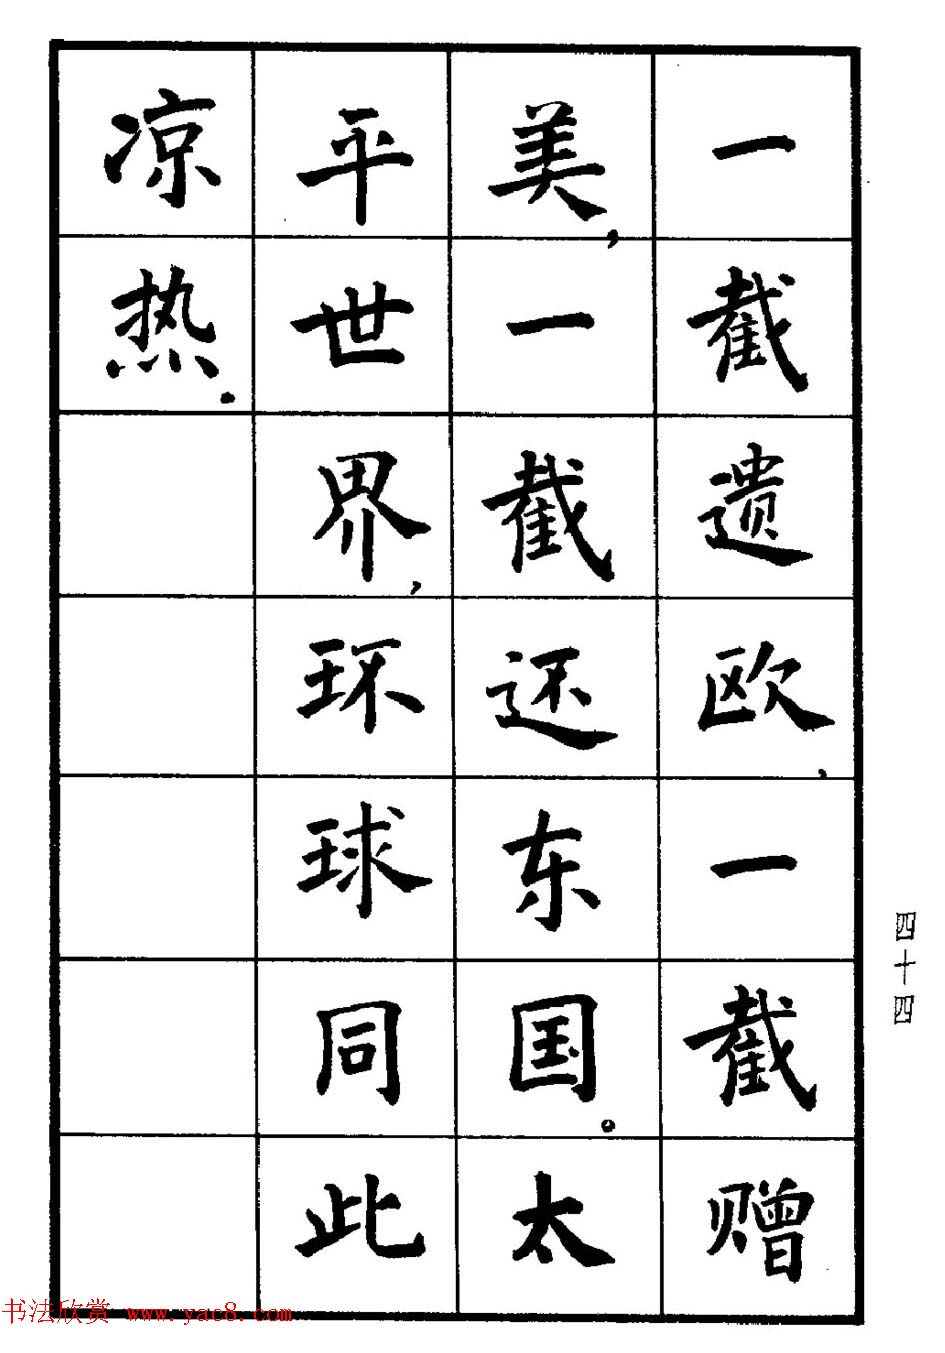 一截遗欧，一截赠
美，一截还东国。太
平世界，环球同此
凉热。
四十四
书法欣赏 www.yac8.com